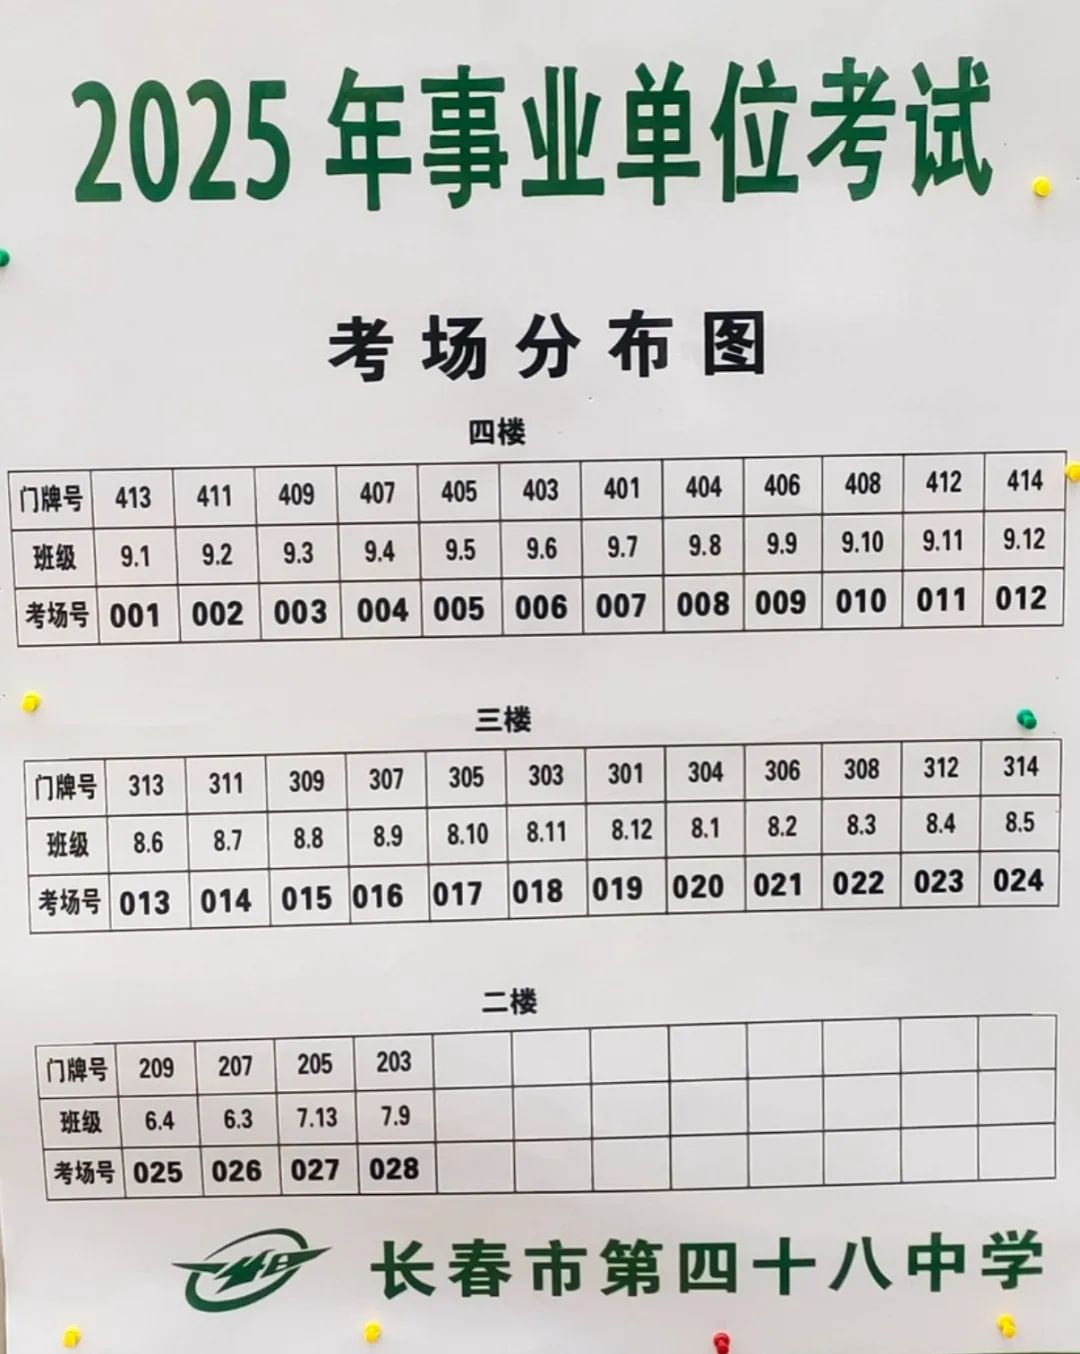 2025年事业单位考试
考场分布图
四楼
门牌号 413 411 409 407 405 403 401 404 406 408 412 414
班级 9.1 9.2 9.3 9.4 9.5 9.6 9.7 9.8 9.9 9.10 9.11 9.12
考场号 001 002 003 004 005 006 007 008 009 010 011 012
三楼
门牌号 313 311 309 307 305 303 301 304 306 308 312 314
班级 8.6 8.7 8.8 8.9 8.10 8.11 8.12 8.1 8.2 8.3 8.4 8.5
考场号 013 014 015 016 017 018 019 020 021 022 023 024
二楼
门牌号 209 207 205 203
班级 6.4 6.3 7.13 7.9
考场号 025 026 027 028
长春市第四十八中学